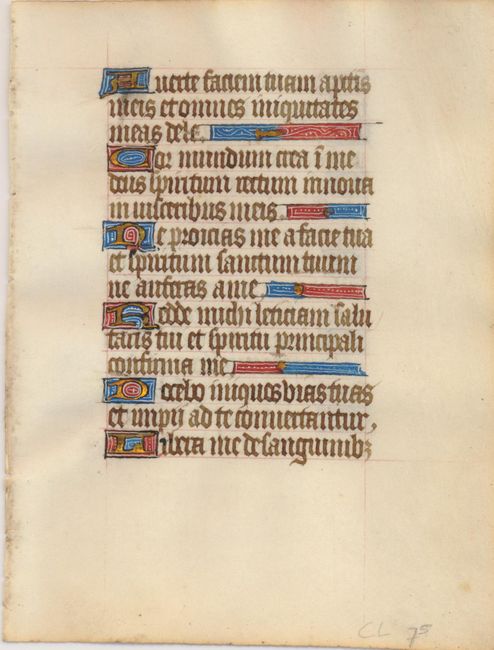 Auerte faciem tuam a pctis
meis et omnes iniquitates
meas dele
Cor mundum crea ī me
deus spiritum rectum innoua
in uisceribus meis
Ne proicias me a facie tua
et spiritum sanctum tuum
ne auferas a me
Redde michi leticiam salu
taris tui et spiritu principali
confirma me
Docebo iniquos vias tuas
et impij ad te conuertantur,
Libera me de sanguinibꝫ
CL 75